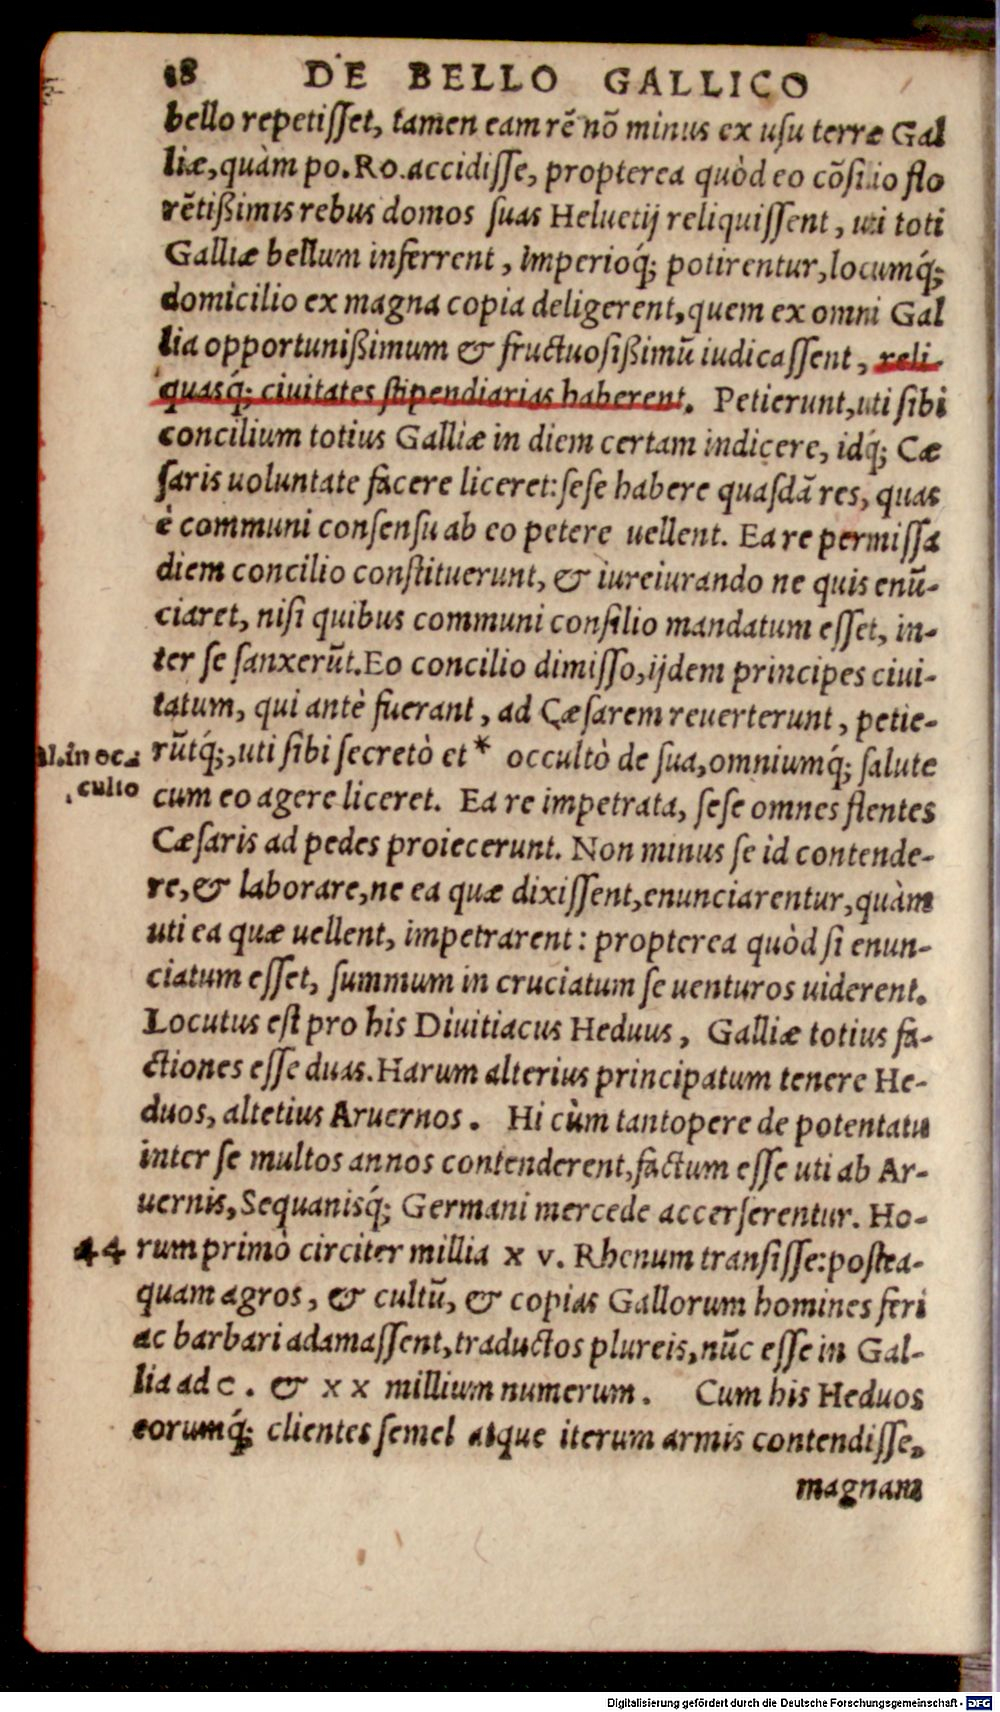 18 DE BELLO GALLICO
bello repetiſſet, tamen eam rē nō minus ex uſu terræ Gal
liæ, quàm po. Ro. accidiſſe, propterea quòd eo cōſilio flo
rētißimis rebus domos ſuas Heluetij reliquiſſent, uti toti
Galliæ bellum inferrent, imperioq́; potirentur, locumq́;
domicilio ex magna copia deligerent, quem ex omni Gal
lia opportunißimum & fructuoſißimū iudicaſſent, reli-
quasq́; ciuitates ſtipendiarias haberent. Petierunt, uti ſibi
concilium totius Galliæ in diem certam indicere, idq́; Cæ
ſaris uoluntate facere liceret: ſeſe habere quaſdā res, quas
è communi conſenſu ab eo petere uellent. Ea re permiſſa
diem concilio conſtituerunt, & iureiurando ne quis enū-
ciaret, niſi quibus communi conſilio mandatum eſſet, in-
ter ſe ſanxerūt. Eo concilio dimiſſo, ijdem principes ciui-
tatum, qui antè fuerant, ad Cæſarem reuerterunt, petie-
al. in oc- rūtq́;, uti ſibi ſecretò et * occultò de ſua, omniumq́; ſalute
culto cum eo agere liceret. Ea re impetrata, ſeſe omnes flentes
Cæſaris ad pedes proiecerunt. Non minus ſe id contende-
re, & laborare, ne ea quæ dixiſſent, enunciarentur, quàm
uti ea quæ uellent, impetrarent: propterea quòd ſi enun-
ciatum eſſet, ſummum in cruciatum ſe uenturos uiderent.
Locutus eſt pro his Diuitiacus Heduus, Galliæ totius fa-
ctiones eſſe duas. Harum alterius principatum tenere He-
duos, altetius Aruernos. Hi cùm tantopere de potentatu
inter ſe multos annos contenderent, factum eſſe uti ab Ar-
uernis, Sequanisq́; Germani mercede accerſerentur. Ho-
44 rum primò circiter millia x v. Rhenum tranſiſſe: poſtea-
quam agros, & cultū, & copias Gallorum homines feri
ac barbari adamaſſent, traductos plureis, nūc eſſe in Gal-
lia ad c. & x x millium numerum. Cum his Heduos
eorumq́; clientes ſemel atque iterum armis contendiſſe,
magnam
Digitalisierung gefördert durch die Deutsche Forschungsgemeinschaft - DFG